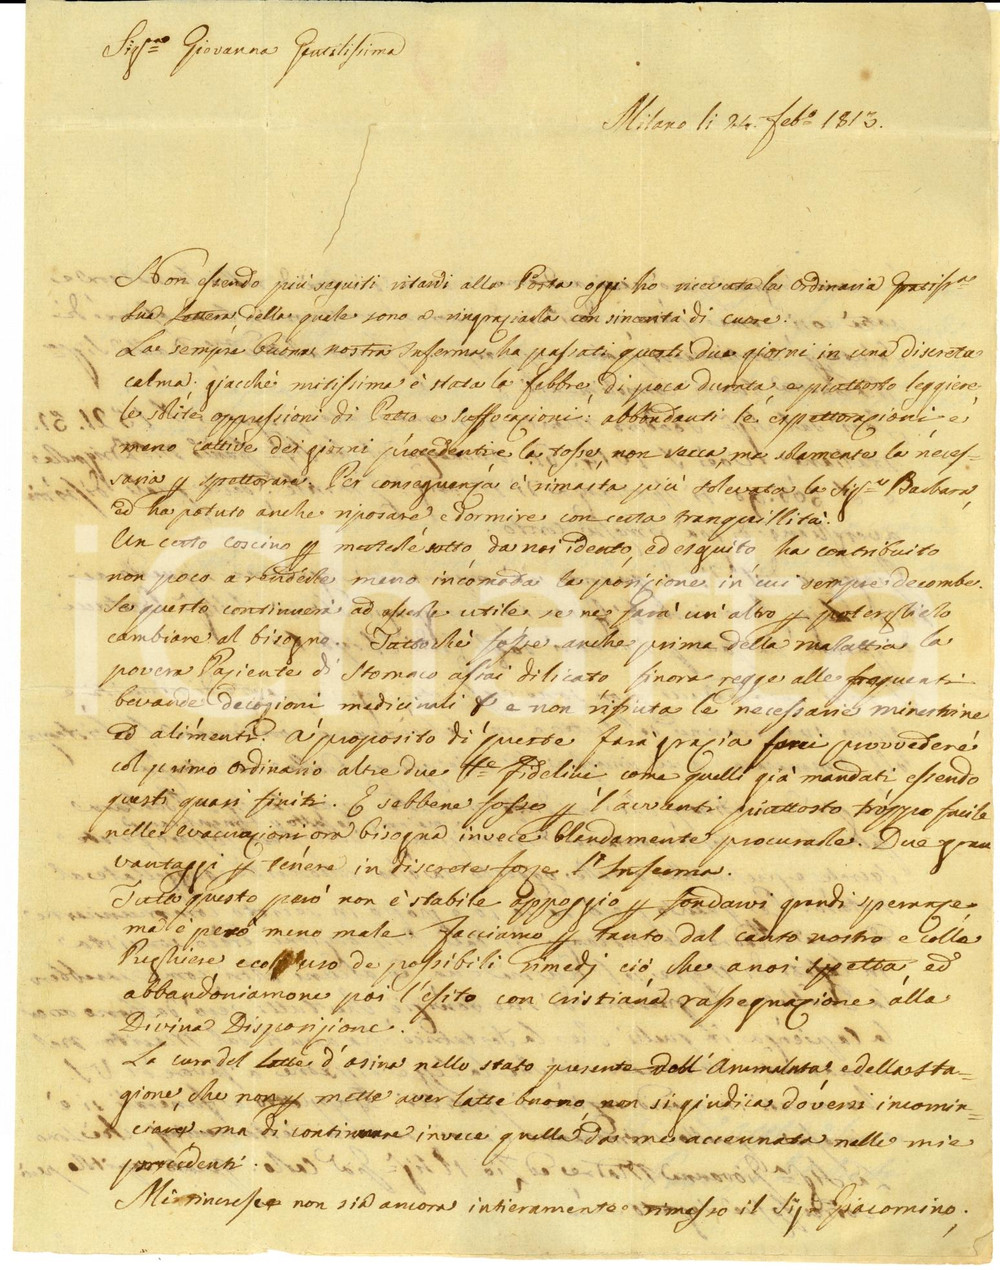 Sig.ra Giovanna Gentilissima
Milano li 24. Feb.o 1813.
Non essendo più seguiti ritardi alla Posta oggi ho ricevuta la ordinaria Gratiss.ma
sua Lettera della quale sono a ringraziarla con sincerità di cuore.
La sempre buona nostra Inferma ha passati questi due giorni in una discreta
calma: giacchè mitissima è stata la febbre, di poca durata e piuttosto leggiere
le solite oppressioni di Petto e soffocazioni: abbondanti le espettorazioni e
meno cattive dei giorni precedenti e la tosse non secca, ma solamente la neces-
saria p spettorare. Per conseguenza è rimasta più sollevata la Sig.ra Barbara
ed ha potuto anche riposare e dormire con certa tranquillità.
Un certo Coscino p metterle sotto da noi ideato, ed eseguito ha contribuito
non poco a renderle meno incomoda la posizione in cui sempre decombe.
Se questo continuerà ad esserle utile se ne farà un'altro p poterglielo
cambiare al bisogno. Tuttochè fosse anche prima della malattia la
povera Paziente di Stomaco assai dilicato finora regge alle frequenti
bevande decozioni medicinali e non rifiuta le necessarie minestrine
ed alimenti. A proposito di queste farà grazia provvedere
col primo Ordinario altre due Fidelini come quelli già mandati essendo
questi quasi finiti. E sebbene fosse p l'avanti piuttosto troppo facile
nelle evacuazioni ora bisogna invece blandamente procurarle. Due gran
vantaggi p tenere in discrete forze l'Inferma.
Tutto questo però non è stabile appoggio p fondarvi grandi speranze
ma è però meno male. Facciamo p tanto dal canto nostro e colle
Preghiere e coll'uso de possibili rimedj ciò che a noi spetta ed
abbandoniamone poi l'esito con cristiana rassegnazione alla
Divina Disposizione.
La cura del latte d'asina nello stato presente dell'Ammalata e della sta-
gione, che non p mette aver latte buono, non si giudica doversi incomin-
ciare. ma di continuare invece quella da me accennata nelle mie
precedenti.
Mi rincresce non sia ancora intieramente rimesso il Sig.r Giacomino,